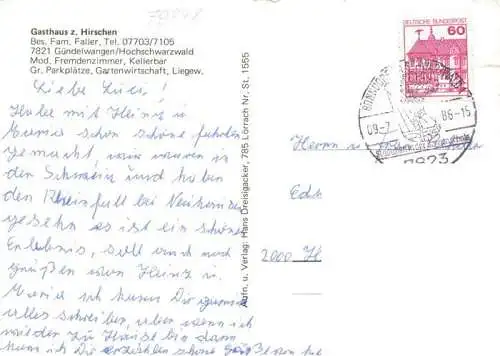 79848
Gasthaus z. Hirschen
Bes. Fam. Faller, Tel. 07703/7105
7821 Gündelwangen/Hochschwarzwald
Mod. Fremdenzimmer, Kellerbar
Gr. Parkplätze, Gartenwirtschaft, Liegew.
Liebe
Habe mit Heinz u.
Maria schon schöne fahrten
gemacht, wir waren in
der Schweiz und haben
den Rheinfall bei
gesehn es ist ein schönes
Erlebnis, soll auch noch
grüßen von Heinz u.
Maria ich kann Dir garnicht
alles schreiben, aber wenn ich
wieder zu Hause bin dann
kann ich Dir erzählen schöne Grüße
Aufn. u. Verlag: Hans Dreisigacker, 785 Lörrach Nr. St. 1555
DEUTSCHE BUNDESPOST
60
09-7
86-15
7823
Herrn u.
2000 H